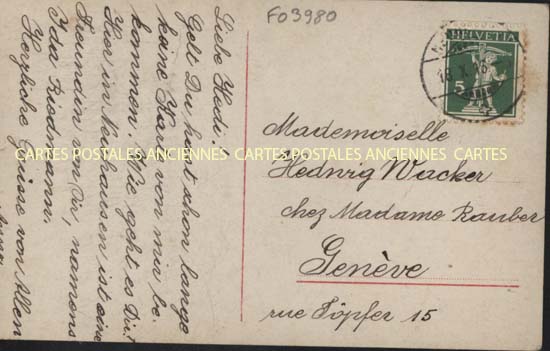 FO3980
HELVETIA
5
Liebe Hedi!
Gelt Du hast schon lange
keine Karte von mir be-
kommen. Wie geht es Dir?
Hier in Neuhausen ist eine
Freundin von Dir, namens
Ida Rissmann.
Herzliche Grüsse von Allen
Mademoiselle
Hedwig Wacker
chez Madame Rauber
Genève
rue Töpfer 15
CARTES POSTALES ANCIENNES CARTES POSTALES ANCIENNES CARTES